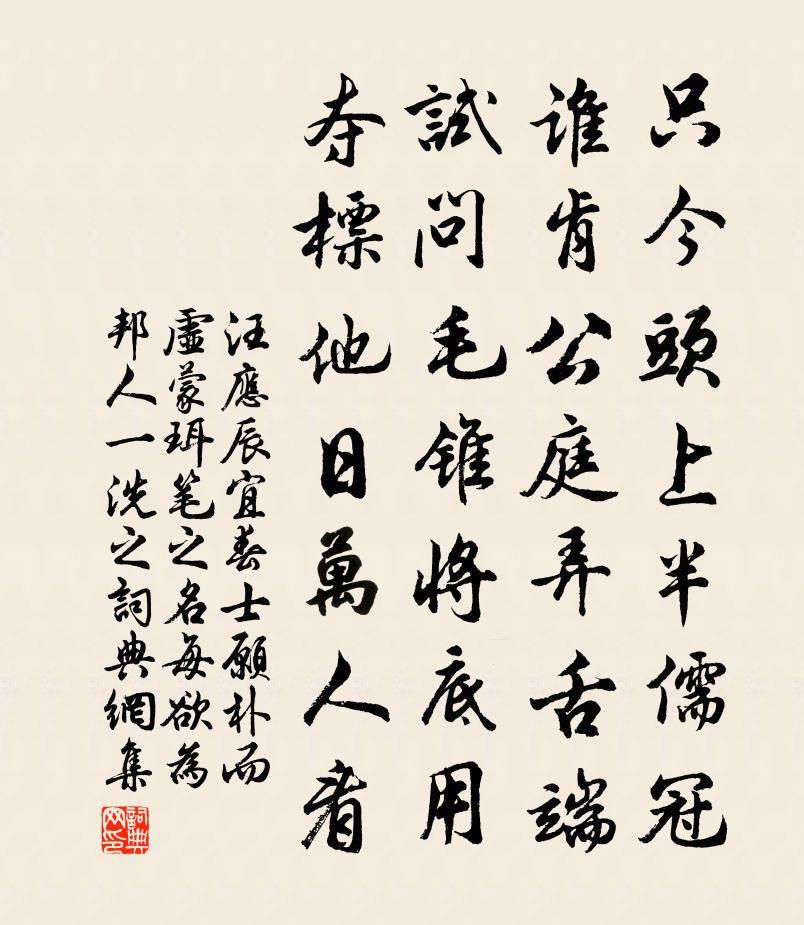 只今頭上半儒冠
誰肯公庭弄舌端
試問毛錐將底用
夺標他日萬人看
汪應辰宜春士願朴而
虛蒙珥笔之名每欲為
邦人一洗之詞典網集
詞典网印